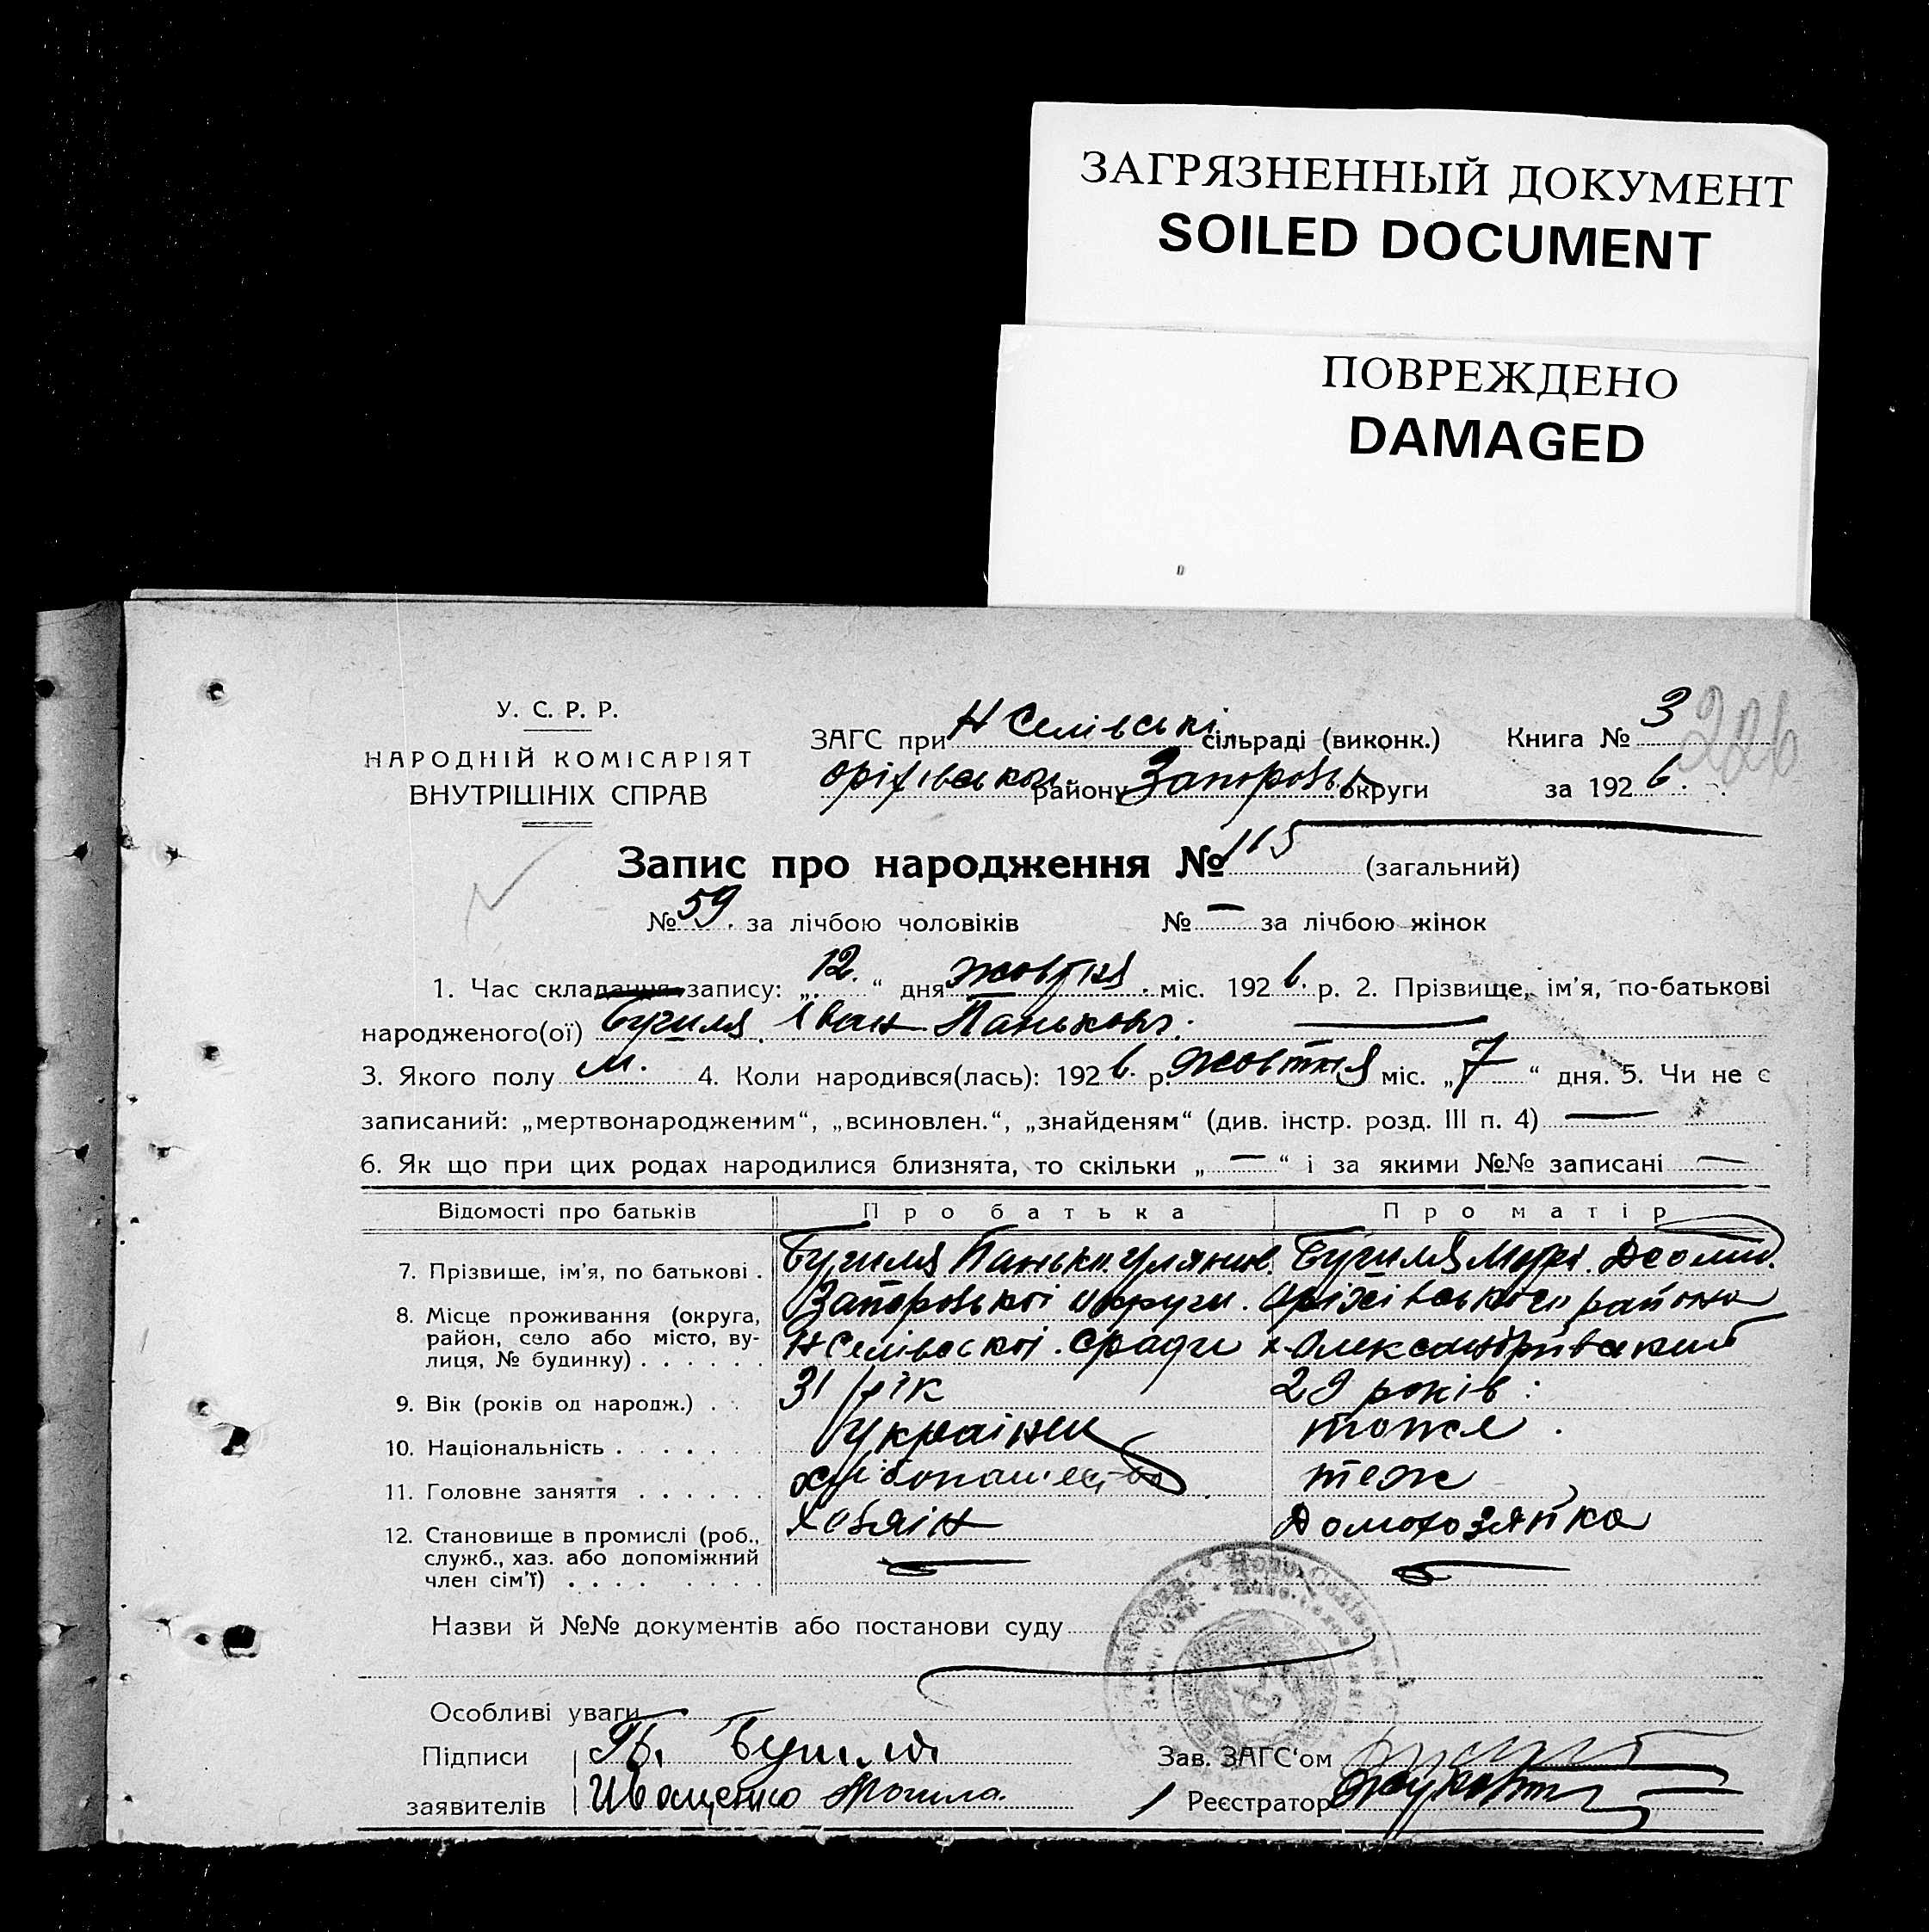 ЗАГРЯЗНЕННЫЙ ДОКУМЕНТ
SOILED DOCUMENT
ПОВРЕЖДЕНО
DAMAGED
У. С. Р. Р.
НАРОДНІЙ КОМІСАРІЯТ
ВНУТРІШНІХ СПРАВ
ЗАГС при Н Селівські сільраді (виконк.)
Оріхівської району Запорозьк округи
Книга № 3
226
за 1926.
Запис про народження № 115 (загальний)
№ 59. за лічбою чоловіків № — за лічбою жінок
1. Час складання запису: „12.“ дня жовтня міс. 1926. р. 2. Прізвище, ім'я, по-батькові
народженого(ої) Бугиля Іван Панькович.
3. Якого полу м. 4. Коли народився(лась): 1926. р. жовтня міс. „7“ дня. 5. Чи не є
записаний: „мертвонародженим“, „всиновлен.“, „знайденям“ (див. інстр. розд. III п. 4) —
6. Як що при цих родах народилися близнята, то скільки „—“ і за якими №№ записані —
Відомості про батьків Про батька Про матір
7. Прізвище, ім'я, по батькові . Бугиля Панько Бугиля
8. Місце проживання (округа, район, село або місто, вулиця, № будинку) . . . . . . Запорозької округи. Оріхівського района
Н Селівської с/ради х. Олександрівский
9. Вік (років од народж.) . . 31 рік 29 років
10. Національність . . . . . . українец тоже.
11. Головне заняття . . . . . . хлібопашество теж
12. Становище в промислі (роб., служб., хаз. або допоміжний член сім'ї) . . . . . . . . Хозяін Домохозяйка
Назви й №№ документів або постанови суду
Особливі уваги
Підписи П. Бугиля
заявителів Иващенко
Зав. ЗАГС'ом
Реєстратор